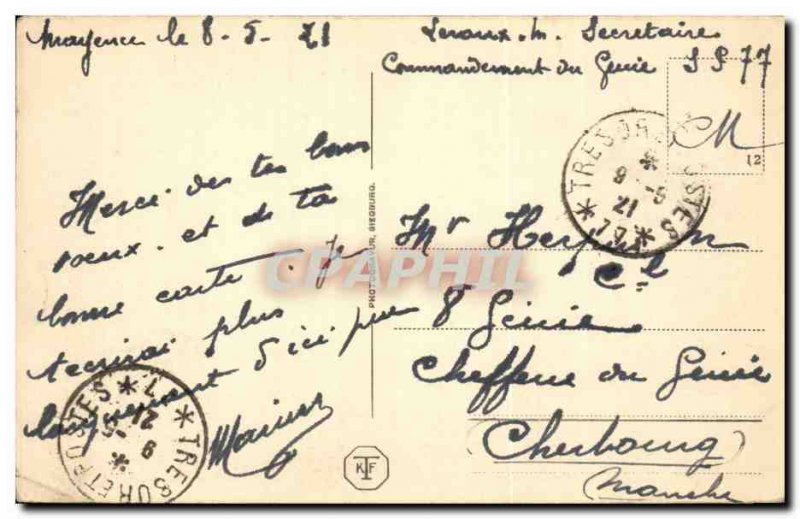 Mayence le 8-5-21
Leroux. M. Secretaire
Commandement du Genie SP 77
M
12
Merci des tes bons
voeux et de ta
bonne carte. Je
t'ecrirai plus
longuement d'ici peu
Marius
Mr
Cel
8 Génie
Chefferie du Génie
Cherbourg
Manche
TRESOR ET POSTES
* 77 *
8-5
21
TRESOR ET POSTES
9
21
PHOTOGRAVUR, SIEGBURG.
KTF
CPAPHIL